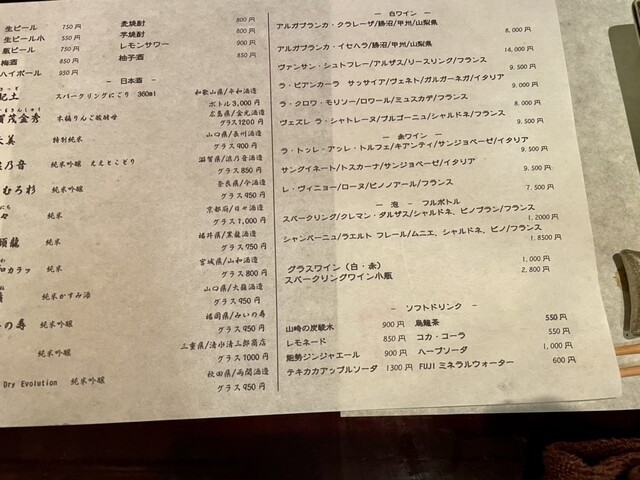 生ビール 750円
生ビール小 550円
瓶ビール 750円
梅酒 850円
ハイボール 950円
麦焼酎 800円
芋焼酎 800円
レモンサワー 900円
柚子酒 850円
― 日本酒 ―
紀土 スパークリングにごり 360ml 和歌山県/平和酒造
ボトル3,000円
賀茂金秀 木桶りんご酸酵母 広島県/金光酒造
グラス1200円
天美 特別純米 山口県/長州酒造
グラス900円
浪乃音 純米吟醸 ええとことり 滋賀県/浪乃音酒造
グラス850円
むろ杉 純米吟醸 奈良県/今酒造
グラス950円
純米 京都府/日々酒造
グラス1,000円
頭龍 純米 福井県/黒龍酒造
グラス750円
カラッ 純米 宮城県/山和酒造
グラス800円
純米かすみ酒 山口県/大嶺酒造
グラス950円
の寿 純米吟醸 福岡県/みいの寿
グラス950円
純米吟醸 三重県/清水清三郎商店
グラス1000円
Dry Evolution 純米吟醸 秋田県/両関酒造
グラス950円
― 白ワイン ―
アルガブランカ・クラレーザ/勝沼/甲州/山梨県
8,000円
アルガブランカ・イセハラ/勝沼/甲州/山梨県
14,000円
ヴァンサン・シュトフレー/アルザス/リースリング/フランス
9.500円
ラ・ビアンカーラ サッサイア/ヴェネト/ガルガーネガ/イタリア
9.000円
ラ・クロワ・モリソー/ロワール/ミュスカデ/フランス
8.000円
ヴェズレ ラ・シャトレーヌ/ブルゴーニュ/シャルドネ/フランス
9.500円
― 赤ワイン ―
ラ・トッレ・アッレ・トルフェ/キアンティ/サンジョベーゼ/イタリア
9.500円
サングイネート/トスカーナ/サンジョベーゼ/イタリア
9.500円
レ・ヴィニョー/ローヌ/ピノノアール/フランス
7.500円
― 泡 ― フルボトル
スパークリング/クレマン・ダルザス/シャルドネ、ピノブラン/フランス
1.2000円
シャンパーニュ/ラエルト フレール/ムニエ、シャルドネ、ピノ/フランス
1.8500円
グラスワイン（白・赤） 1,000円
スパークリングワイン小瓶 2,800円
― ソフトドリンク ―
山崎の炭酸水 900円 烏龍茶 550円
レモネード 850円 コカ・コーラ 550円
能勢ジンジャエール 900円 ハーブソーダ 1,000円
テキカカアップルソーダ 1300円 FUJI ミネラルウォーター 600円